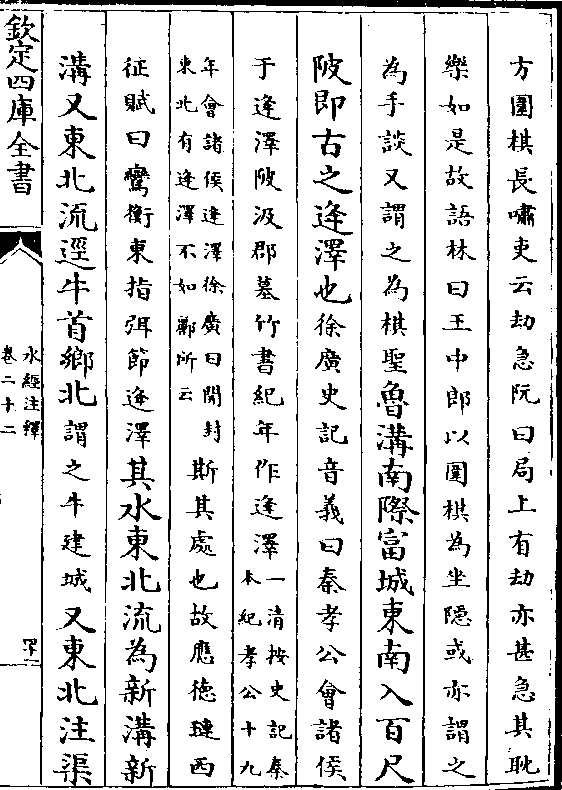 方圍棋長嘯吏云劫急阮曰局上有劫亦甚急其耽
樂如是故語林曰王中郎以圍棋為坐隠或亦謂之
為手談又謂之為棋聖魯溝南際富城東南入百尺
陂即古之逄澤也徐廣史記音義曰秦孝公會諸侯
于逄澤陂汲郡墓竹書紀年作逄澤一清按史記秦
本紀孝公十九
年會諸侯逄澤徐廣曰開封
東北有逄澤不如酈所云斯其處也故應德璉西
征賦曰鸞衡東指弭節逄澤其水東北流為新溝新
溝又東北流逕牛首鄉北謂之牛建城又東北注渠
欽定四庫全書
水經注釋
卷二十二